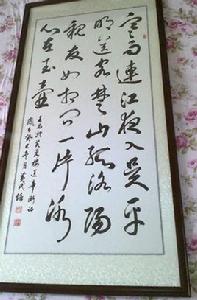 寒雨連江夜入吴平
明送客楚山孤洛陽
親友如相问一片冰
心在玉壶
王昌龄芙蓉楼送辛渐诗